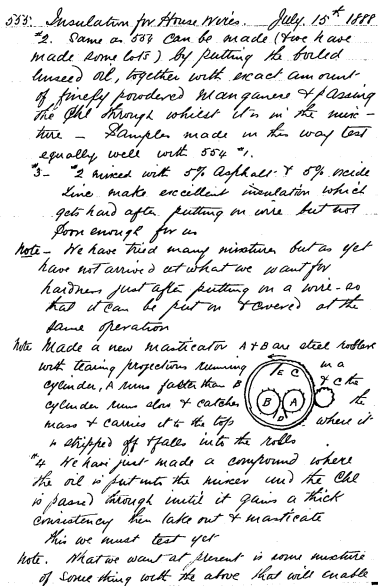 555. Insulation for House Wires. July. 15th 1888
#2. Same as 554 can be made (& we have
made some lots) by putting the boiled
linseed oil, together with exact amount
of finely powdered Manganese & passing
the Chl through whilst it is in the mix-
ture - Samples made in this way test
equally well with 554 #1.
#3- #2 mixed with 5% Asphalt & 5% oxide
Zinc make excellent insulation which
gets hard after putting on wire but not
soon enough for us
Note- We have tried many mixtures but as yet
have not arrived at what we want for
hardness just after putting on a wire - so
that it can be put on & covered at the
same operation
Note Made a new masticator A & B are steel rollers
with tearing projections running in a
cylinder, A runs faster than B & C the
cylinder runs slow & catches the
mass & carries it to the top where it
is stripped off & falls into the rolls
E C
B A
D
#4 We have just made a compound where
the oil is put into the mixer and the Chl
is passed through until it gains a thick
consistency then take out & masticate
this we must test yet
Note. What we want at present is some mixture
of something with the above that will enable